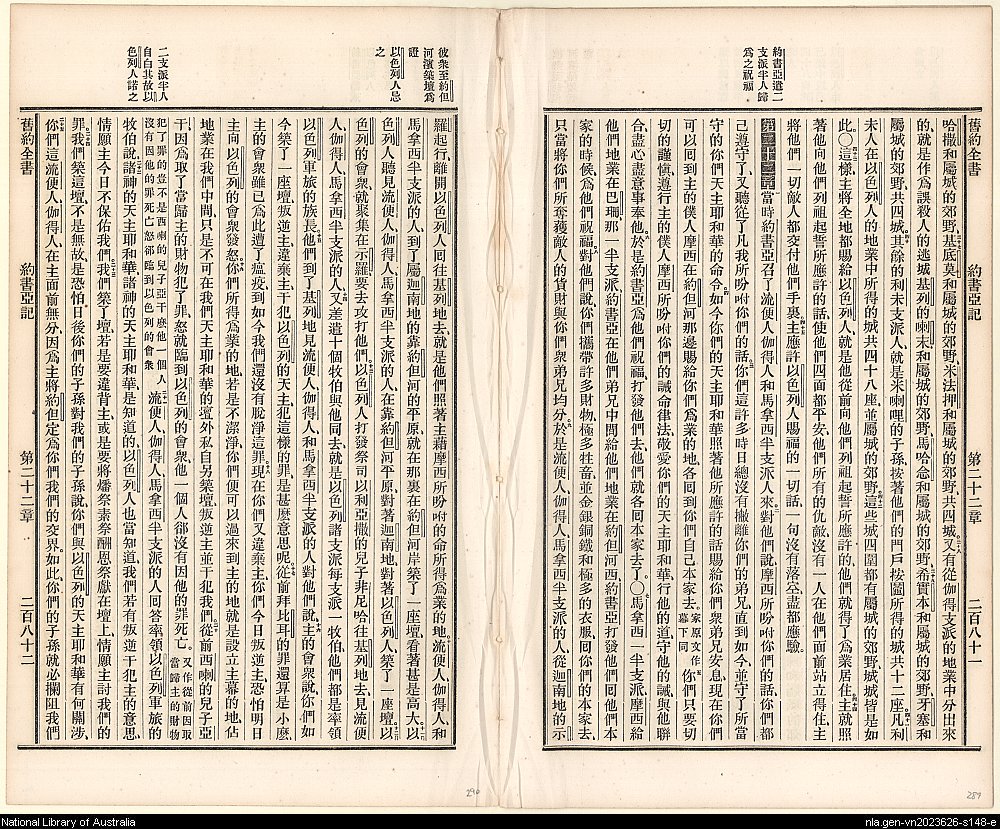 約書亞遣二
支派半人歸
爲之祝福
舊約全書
約書亞記
第二十二章
二百八十一
哈撒和屬城的郊野基底莫和屬城的郊野米法押和屬城的郊野共四城又有從伽得支派的地業中分出來
的就是作爲誤殺人的逃城基列的喇末和屬城的郊野馬哈念和屬城的郊野希實本和屬城的郊野牙塞和
屬城的郊野共四城其餘的利未支派人就是米喇哩的子孫按著他們的門戶按鬮所得的城共十二座凡利
未人在以色列人的地業中所得的城共四十八座並屬城的郊野這些城四圍都有屬城的郊野城城皆是如
此〇這樣主將全地都賜給以色列人就是他從前向他們列祖起誓所應許的他們就得了爲業居住主就照
著他向他們列祖起誓所應許的話使他們四面都平安他們所有的仇敵沒有一人在他們面前站立得住主
將他們一切敵人都交付他們手裏主應許以色列人賜福的一切話一句沒有落空盡都應驗
第二十二章當時約書亞召了流便人伽得人和馬拿西半支派人來對他們說摩西所吩咐你們的話你們都
己遵守了又聽從了凡我所吩咐你們的話你們這許多時日總沒有撇離你們的弟兄直到如今並守了所當
守的你們的天主耶和華的命令如今你們的天主耶和華照著他所應許的話賜給你們衆弟兄安息現在你們
可以囘到主的僕人摩西在約但河那邊賜給你們爲業的地各囘到你們自己本家去家原文作幕下同你們只要切
切的謹愼遵行主的僕人摩西所吩咐你們的誡命律法敬愛你們的天主耶和華行他的道守他的誡與他聯
合盡心盡意事奉他於是約書亞爲他們祝福打發他們去他們就各囘本家去了〇馬拿西一半支派摩西給
他們地業在巴珊那一半支派約書亞在他們弟兄中間給他們地業在約但河西約書亞打發他們囘他們本
家的時候爲他們祝福對他們說你們攜帶許多財物極多牲畜並金銀銅鐵和極多的衣服囘你們的本家去
只當將你們所奪獲敵人的貨財與你們衆弟兄均分於是流便人伽得人馬拿西半支派的人從迦南地的示
彼衆至約但
河濱築壇爲
證
以色列人忌
之
二支派半人
自白其故以
色列人諾之
羅起行離開以色列人囘往基列地去就是他們照著主藉摩西所吩咐的命所得爲業的地流便人伽得人和
馬拿西半支派的人到了屬迦南地的靠約但河的平原就在那裏在約但河岸築了一座壇看著甚是高大以
色列人聽見流便人伽得人馬拿西半支派的人在靠約但河平原對著迦南地對著以色列人築了一座壇以
色列的會衆就聚集在示羅要去攻打他們以色列人打發祭司以利亞撒的兒子非尼哈往基列地去見流便
人伽得人馬拿西半支派的人又差遣十個牧伯與他同去就是以色列諸支派每支派一牧伯他們都是率領
以色列軍旅的族長他們到了基列地見流便人伽得人和馬拿西半支派的人對他們說主的會衆說你們如
今築了一座壇叛逆主違棄主干犯以色列的天主犯這樣的罪是甚麼意思呢從前拜比珥的罪還算是小麼
主的會衆雖已爲此遭了瘟疫到如今我們還沒有脫淨這罪現在你們又違棄主你們今日叛逆主恐怕明日
主向以色列的會衆發怒你們所得爲業的地若是不潔淨你們便可以過來到主的地就是設立主幕的地佔
地業在我們中間只是不可在我們天主耶和華的壇外私自另築壇叛逆主並干犯我們從前西喇的兒子亞
干因爲取了當歸主的財物犯了罪怒就臨到以色列的會衆他一個人卻沒有因他的罪死亡又作從前因取當歸主的財物
犯了罪的豈不是西喇的兒子亞干麼他一個人沒有因他的罪死亡怒卻臨到以色列的會衆流便人伽得人馬拿西半支派的人囘答率領以色列軍旅的
牧伯說諸神的天主耶和華諸神的天主耶和華是知道的以色列人也當知道我們若有叛逆干犯主的意思
情願主今日不保佑我們我們築了壇若是要違背主或是要將燔祭素祭酬恩祭獻在壇上情願主討我們的
罪我們築這壇不是無故是恐怕日後你們的子孫對我們的子孫說你們與以色列的天主耶和華有何關涉
你們這流便人伽得人在主面前無分因爲主將約但定爲你們我們的交界如此你們的子孫就必攔阻我們
舊約全書
約書亞記
第二十二章
二百八十二
290
289
National Library of Australia
nla.gen-vn2023626-s148-e